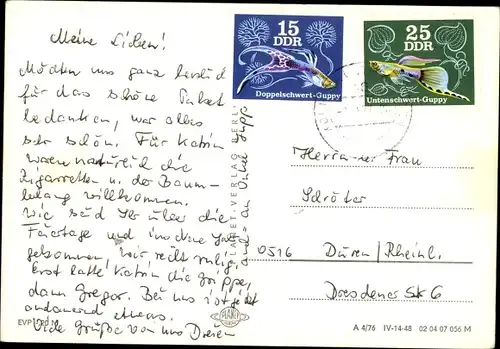 Meine Lieben!
Möchten uns ganz herzlich
für das schöne Paket
bedanken, war alles
sehr schön. Für Katrin
waren natürlich die
Zigaretten u. der Baum-
behang willkommen.
Wie seid Ihr über die
Feiertage und ins neue Jahr
gekommen, wir recht ruhig,
erst hatte Katrin die Grippe,
dann Gregor. Bei uns ist jetzt
andauernd etwas.
Viele Grüße von uns Dreien
und an Onkel
15
DDR
Doppelschwert-Guppy
25
DDR
Untenschwert-Guppy
PLANET-VERLAG BERLIN
PLANET
EVP
Herrn und Frau
Schröter
0516 Düren/Rheinl.
Dresdener Str 6
A 4/76 IV-14-48 02 04 07 056 M